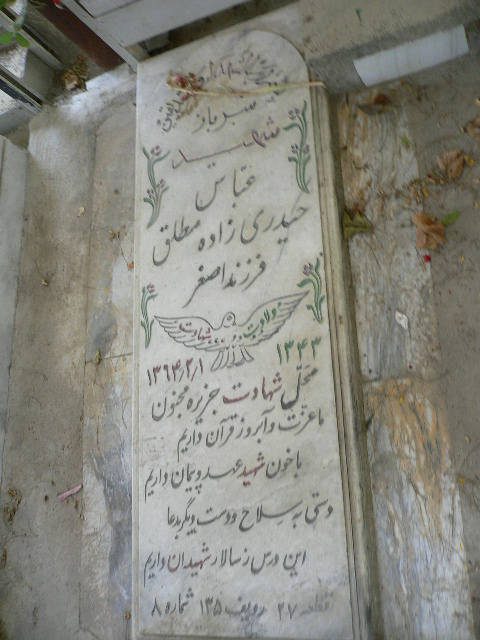 سرباز
شهید
عباس
حیدری زاده مطلق
فرزند اصغر
ولادت شهادت
۱۳۴۳
۱۳۶۴/۲/۱
محل شهادت جزیره مجنون
ما عزت و آبرو ز قرآن داریم
با خون شهید عهد و پیمان داریم
دستی به سلاح و دست دیگر بدعا
این درس ز سالار شهیدان داریم
قطعه ۲۷ ردیف ۱۳۵ شماره ۸